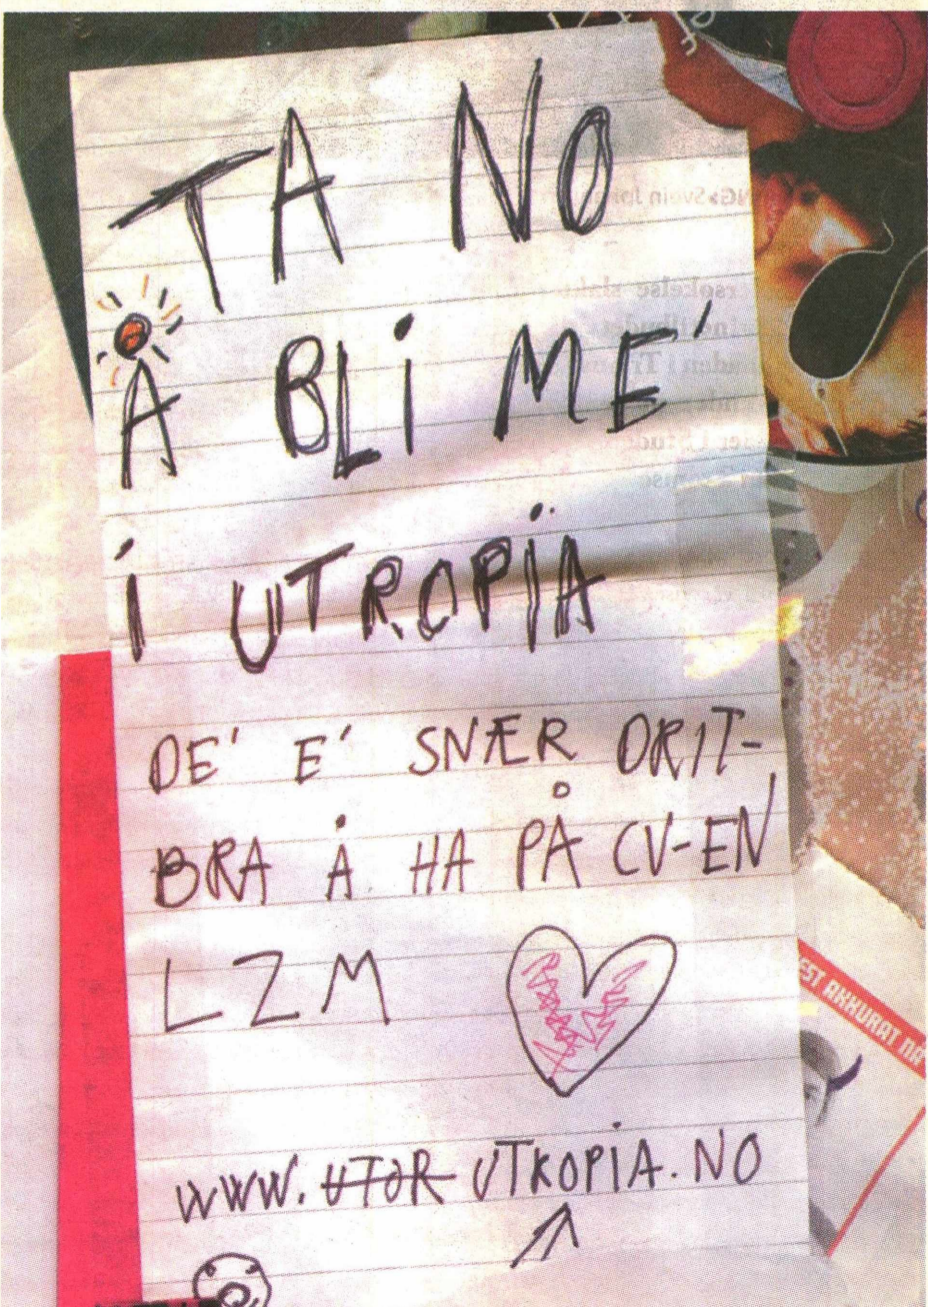 TA NO
Å BLI ME'
I UTROPIA
DE' E' SNÆR DRIT-
BRA Å HA PÅ CV-EN
LZM
WWW. UTOR UTROPIA.NO
EST AKKURAT NÅ